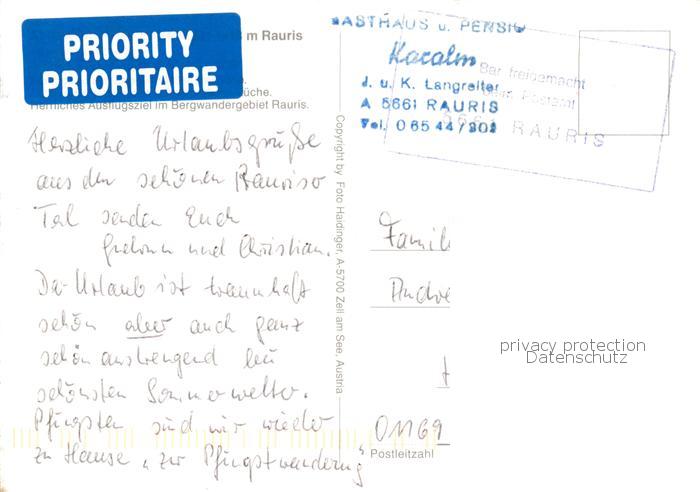 PRIORITY
PRIORITAIRE
m Rauris
üche.
Herrliches Ausflugsziel im Bergwandergebiet Rauris.
Herzliche Urlaubsgrüße
aus den schönen Rauriser
Tal senden Euch
und Christian.
Der Urlaub ist traumhaft
schön aber auch ganz
schön anstrengend bei
schönsten Sommerwetter.
Pfingsten sind wir wieder
zu Hause „zur Pfingstwanderung"
Copyright by Foto Haidinger, A-5700 Zell am See, Austria
GASTHAUS u. PENSION
Kocalm
J. u. K. Langreiter
A 5661 RAURIS
Tel. 06544/302
Bar freigemacht
beim Postamt
5661 RAURIS
Famili
Andre
01169
Postleitzahl
privacy protection
Datenschutz